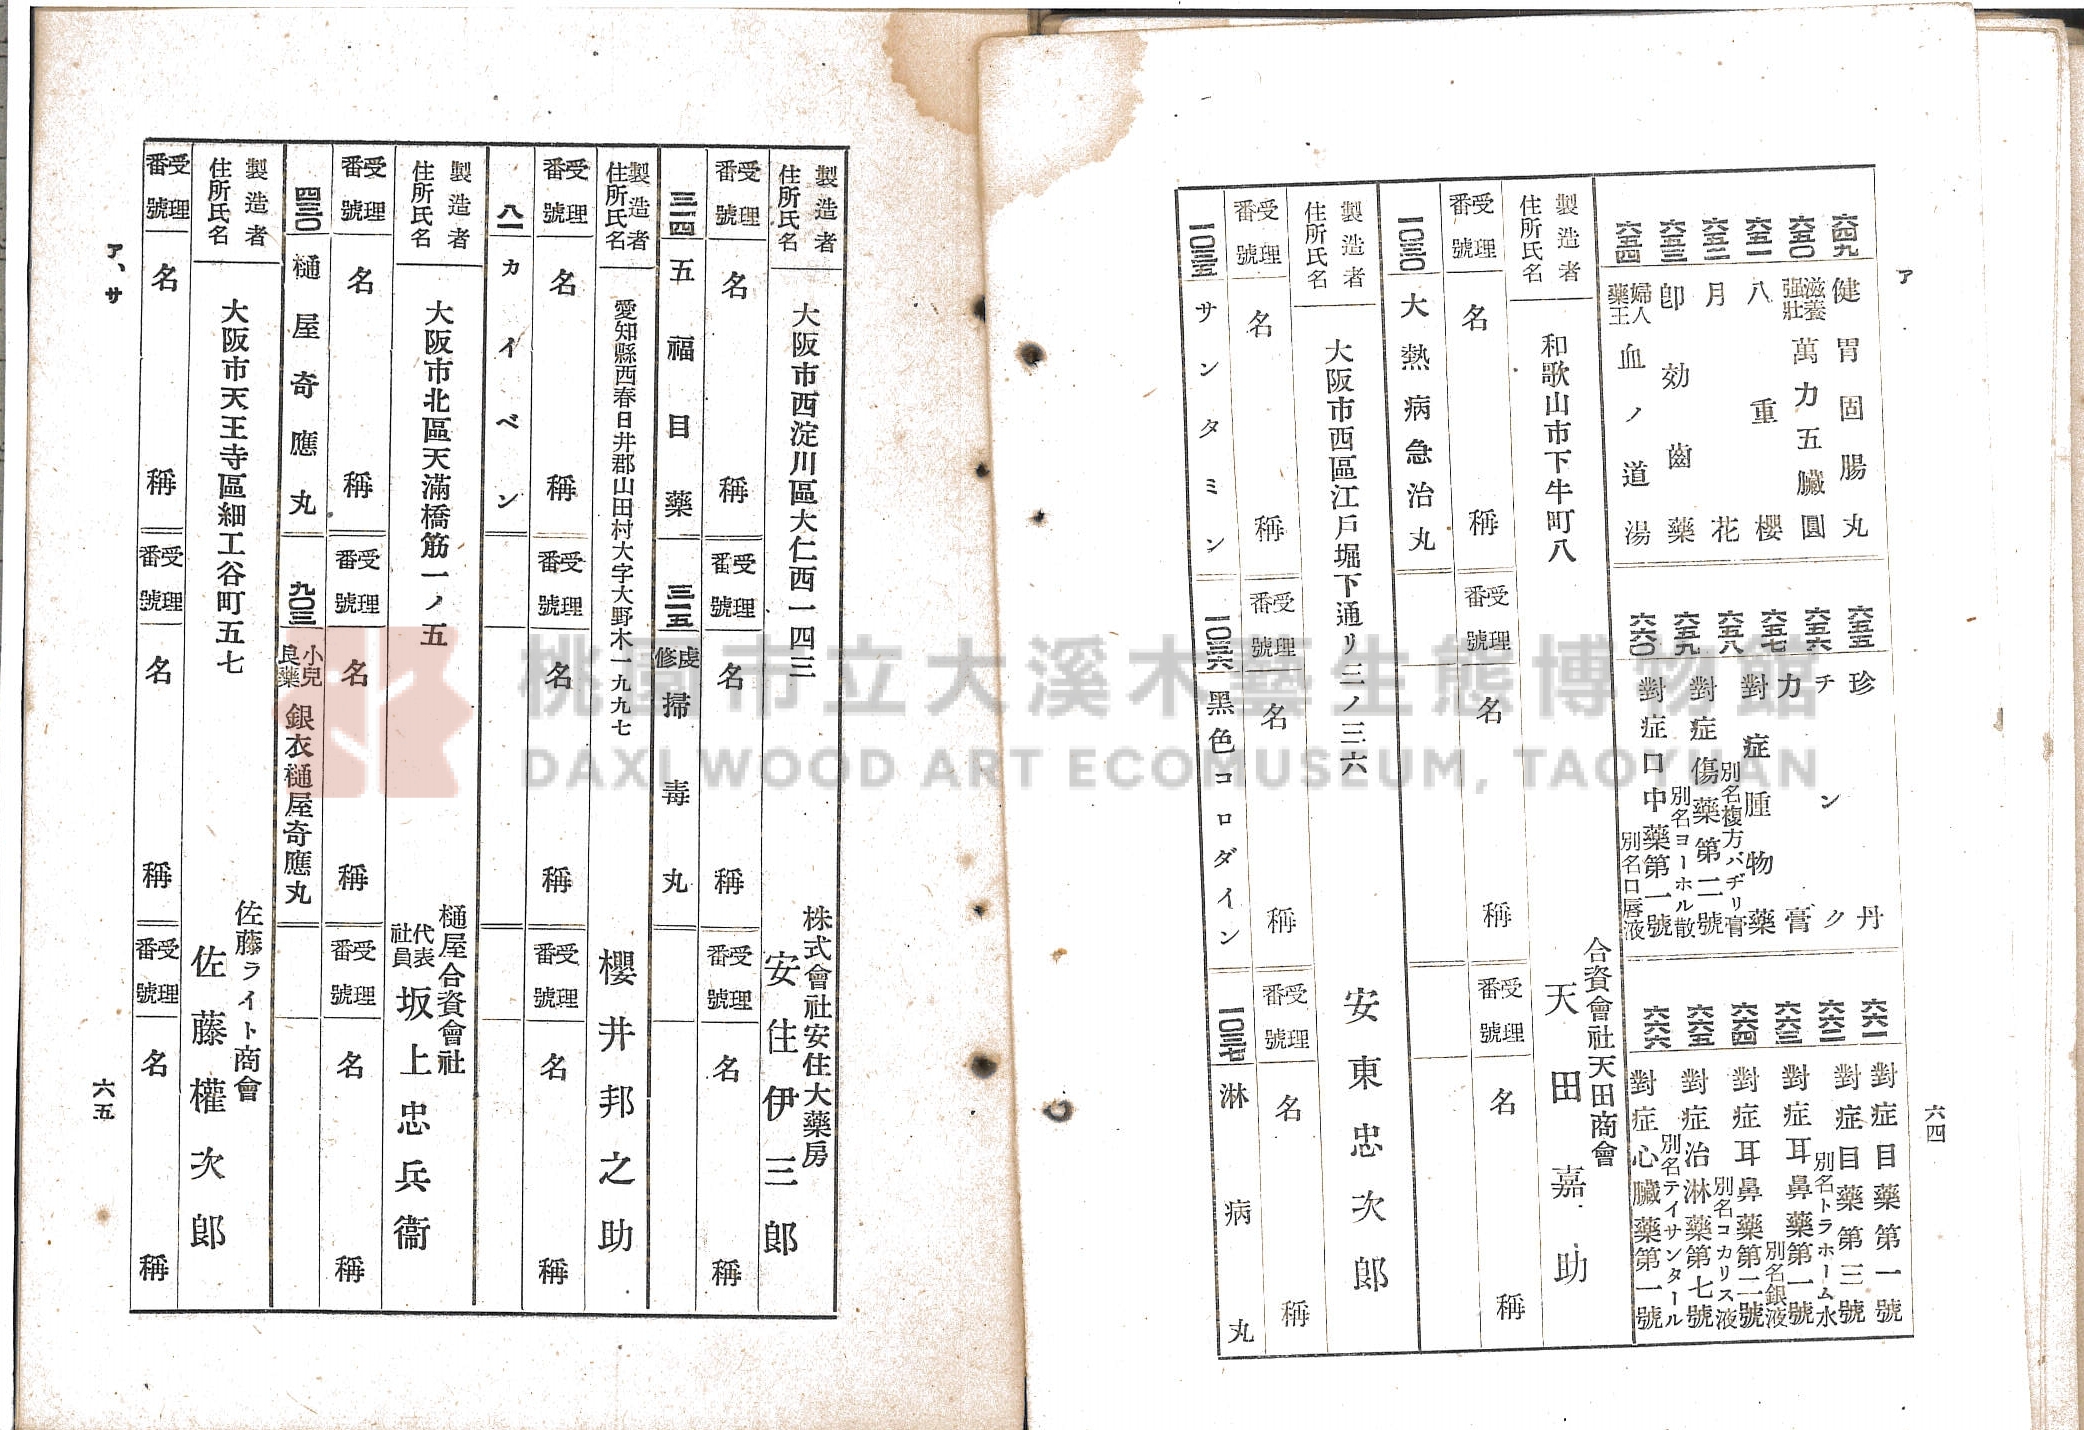 ア
六四
六四九 健胃固腸丸
六五〇 滋養强壯 萬力五臟圓
六五一 八重櫻
六五二 月花
六五三 卽効齒藥
六五四 婦人藥王 血ノ道湯
六五五 珍丹
六五六 チンク
六五七 力膏
六五八 對症腫物藥 別名複方パヂリ膏
六五九 對症傷藥第二號 別名ヨーホル散
六六〇 對症口中藥第一號 別名口唇液
六六一 對症目藥第一號
六六二 對症目藥第三號 別名トラホーム水
六六三 對症耳鼻藥第一號 別名銀液
六六四 對症耳鼻藥第二號 別名コカリス液
六六五 對症治淋藥第七號 別名テイサンタール
六六六 對症心臟藥第一號
製造者住所氏名 和歌山市下牛町八 合資會社天田商會 天田嘉助
受理番號 名稱 受理番號 名稱 受理番號 名稱
一〇三〇 大熱病急治丸
製造者住所氏名 大阪市西區江戶堀下通リ二ノ三六 安東忠次郎
受理番號 名稱 受理番號 名稱 受理番號 名稱
一〇三五 サンタミン 一〇三六 黑色コロダイン 一〇三七 淋病丸
製造者住所氏名 大阪市西淀川區大仁西一四三 株式會社安住大藥房 安住伊三郎
受理番號 名稱 受理番號 名稱 受理番號 名稱
三一四 五福目藥 三一五 虔修 掃毒丸
製造者住所氏名 愛知縣西春日井郡山田村大字大野木一九九七 櫻井邦之助
受理番號 名稱 受理番號 名稱 受理番號 名稱
八一 カイベン
製造者住所氏名 大阪市北區天滿橋筋一ノ五 樋屋合資會社 代表社員 坂上忠兵衞
受理番號 名稱 受理番號 名稱 受理番號 名稱
四三〇 樋屋奇應丸 九〇三 小兒良藥 銀衣樋屋奇應丸
製造者住所氏名 大阪市天王寺區細工谷町五七 佐藤ライト商會 佐藤權次郎
受理番號 名稱 受理番號 名稱 受理番號 名稱
ア、サ
六五
桃園市立大溪木藝生態博物館
DAXI WOOD ART ECOMUSEUM, TAOYUAN